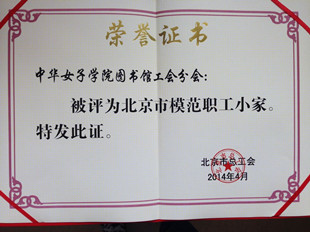 荣誉证书
中华女子学院图书馆工会分会：
被评为北京市模范职工小家。
特发此证。
北京市总工会
2014年4月